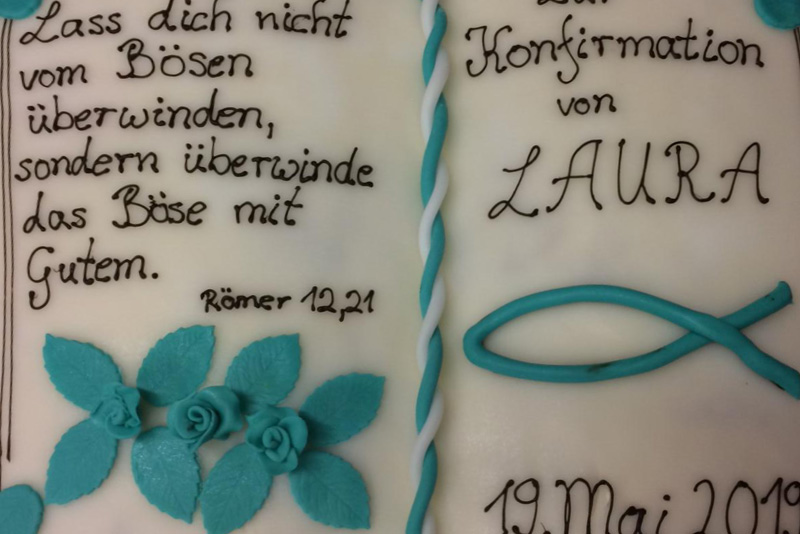 Lass dich nicht
vom Bösen
überwinden,
sondern überwinde
das Böse mit
Gutem.
Römer 12,21
Zur
Konfirmation
von
LAURA
19. Mai 2019